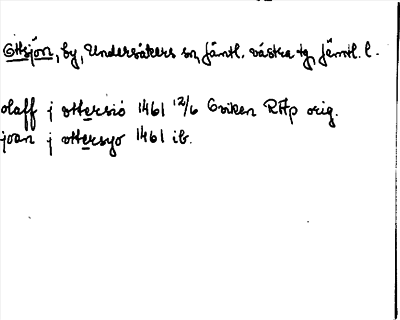 Ottsjön, by, Undersåkers sn, Jämtl. västra tg, Jämtl. l.
olaff j ottersio 1461 12/6 Oviken RAp orig.
joan j ottersyo 1461 ib.